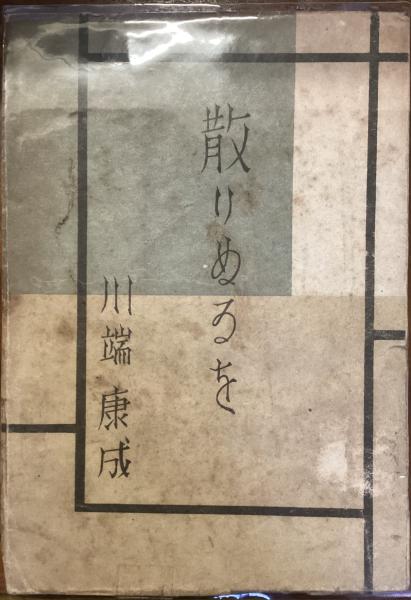 散りぬるを
川端康成